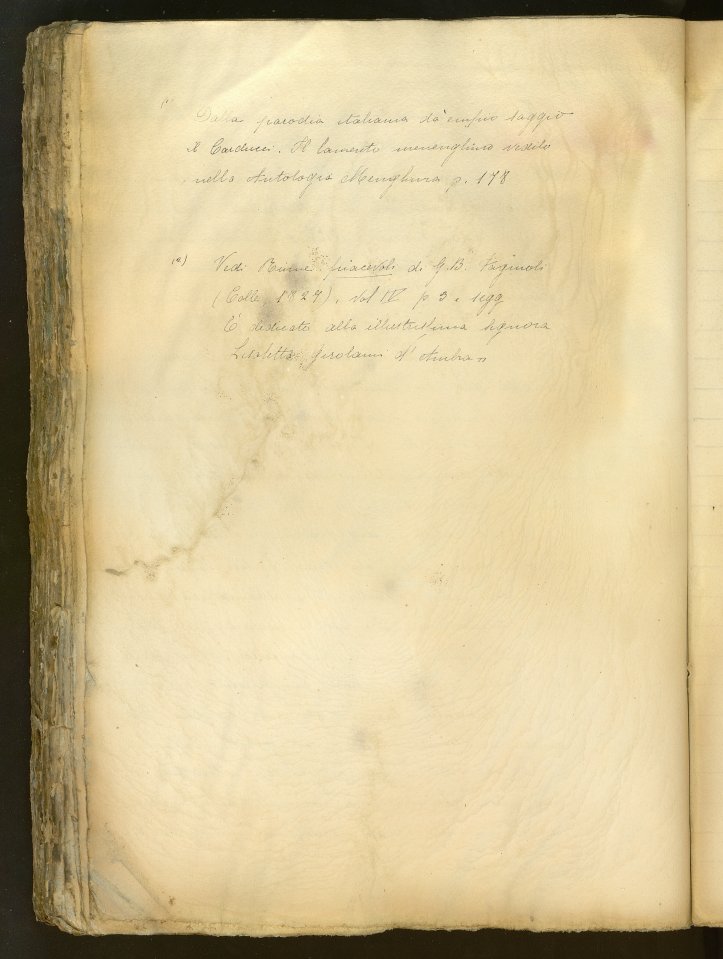 (1
Della parodia italiana dà ampio saggio
il Carducci. Il lamento meneghino vedilo
nella Antologia Meneghina p. 178
(2)
Vedi Rime piacevoli di G. B. Fagiuoli
(Colle, 1827), Vol IV p 3 e segg
È dedicato alla illustrissima signora
Lisabetta Girolami d'Ambra